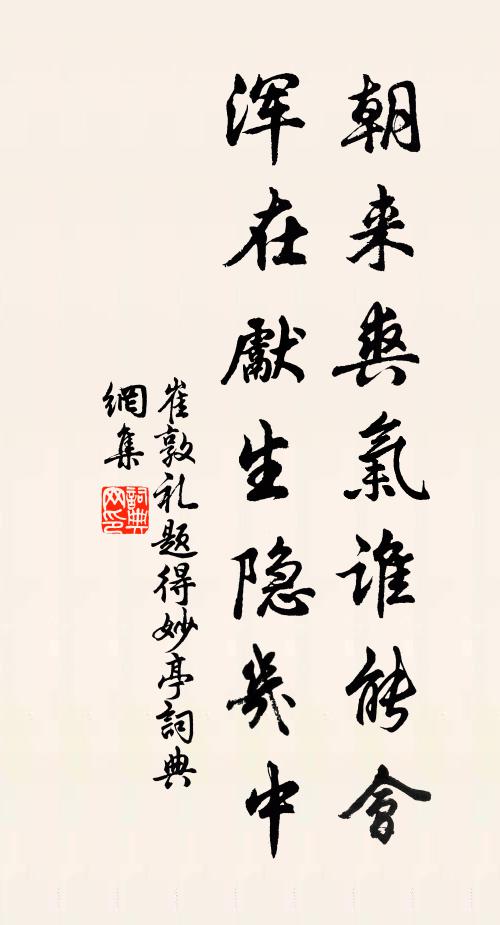 朝来爽氣谁能會
浑在獻生隐几中
崔敦礼题得妙亭詞典
網集
詞典網印